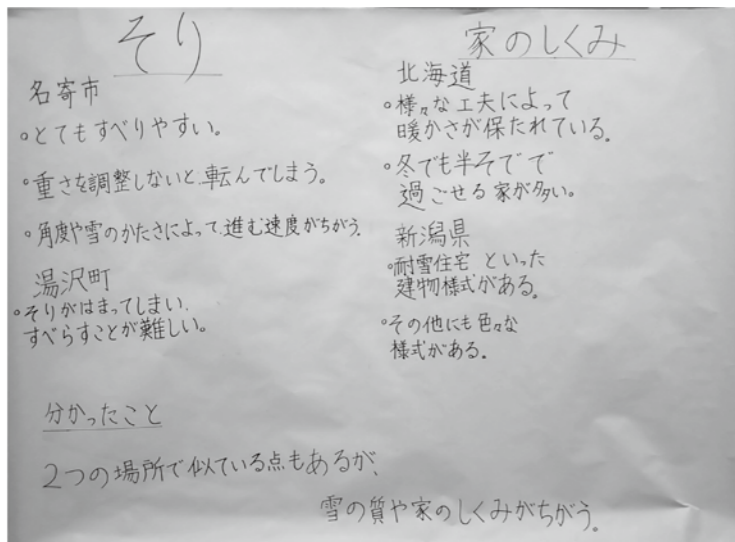 そり
名寄市
。とてもすべりやすい。
。重さを調整しないと、転んでしまう。
。角度や雪のかたさによって、進む速度がちがう。
湯沢町
。そりがはまってしまい、
すべらすことが難しい。
家のしくみ
北海道
。様々な工夫によって
暖かさが保たれている。
。冬でも半そでで
過ごせる家が多い。
新潟県
。耐雪住宅といった
建物様式がある。
。その他にも色々な
様式がある。
分かったこと
2つの場所で似ている点もあるが、
雪の質や家のしくみがちがう。